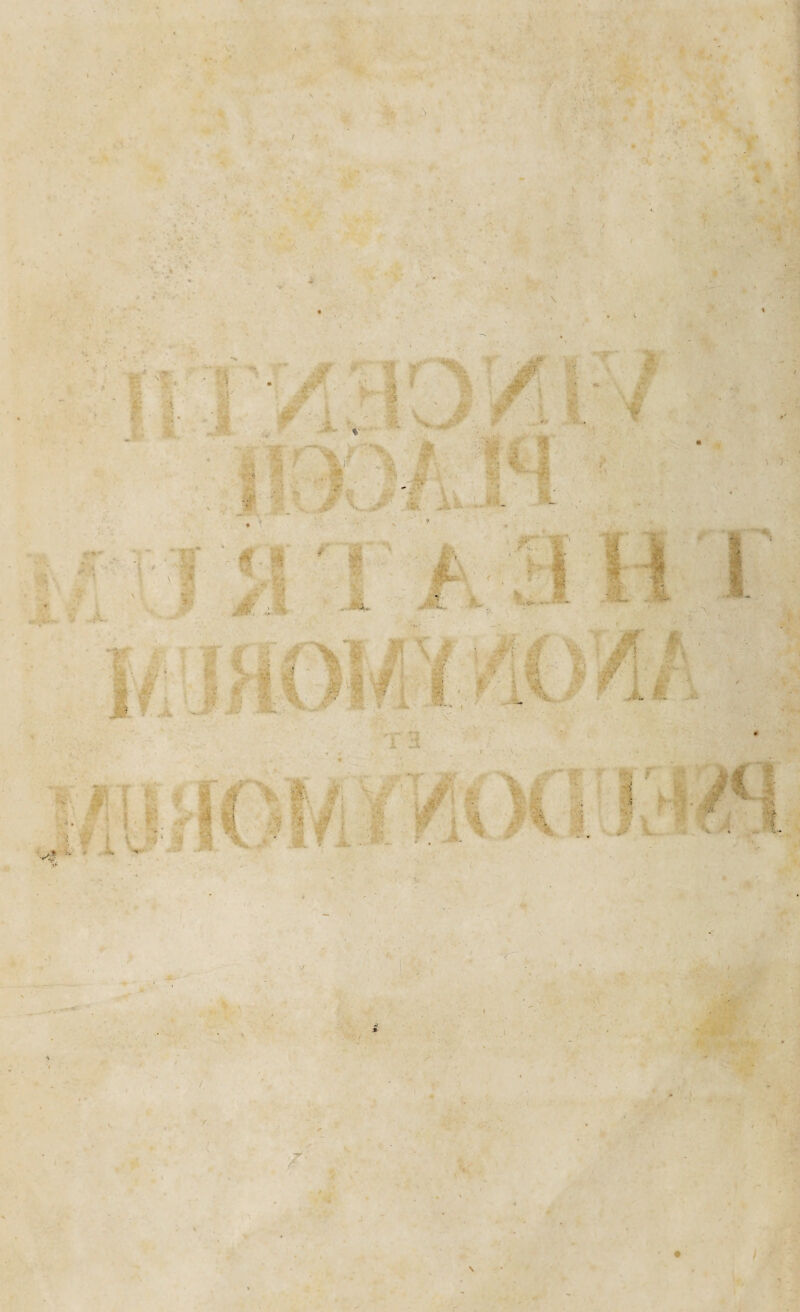 VINCENTII
PLACCII
THEATRUM
ANONYMORUM
ET
PSEUDONYMORUM